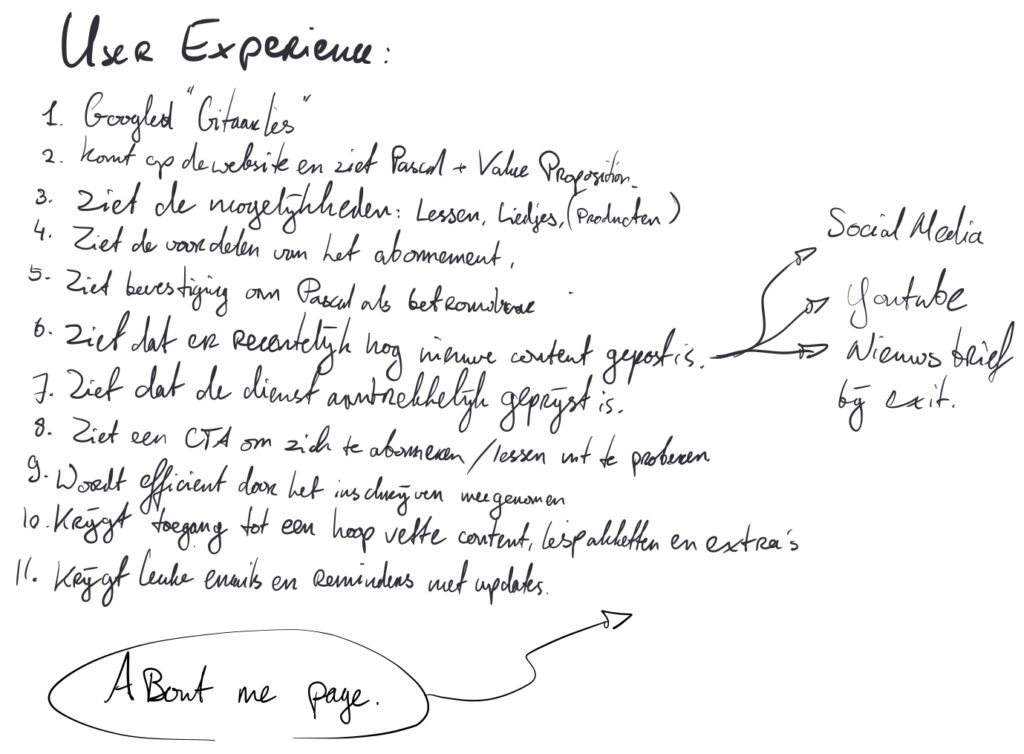 User Experience:
1. Googled "Gitaarles"
2. Komt op de website en ziet Pascal + Value Proposition.
3. Ziet de mogelijkheden: Lessen, Liedjes, (Producten)
4. Ziet de voordelen van het abonnement.
5. Ziet bevestiging van Pascal als betrouwbaar
6. Ziet dat er recentelijk nog nieuwe content gepost is.
Social Media
Youtube
Nieuwsbrief
bij exit.
7. Ziet dat de dienst aantrekkelijk geprijst is.
8. Ziet een CTA om zich te abonneren / lessen uit te proberen
9. Wordt efficient door het inschrijven meegenomen
10. Krijgt toegang tot een hoop vette content, lespakketten en extra's
11. Krijgt leuke emails en reminders met updates.
About me page.